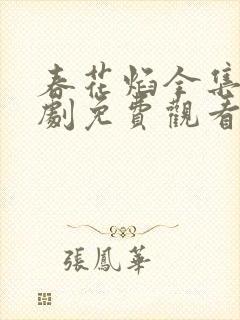 春花焰全集
劇免費觀看
張鳳華